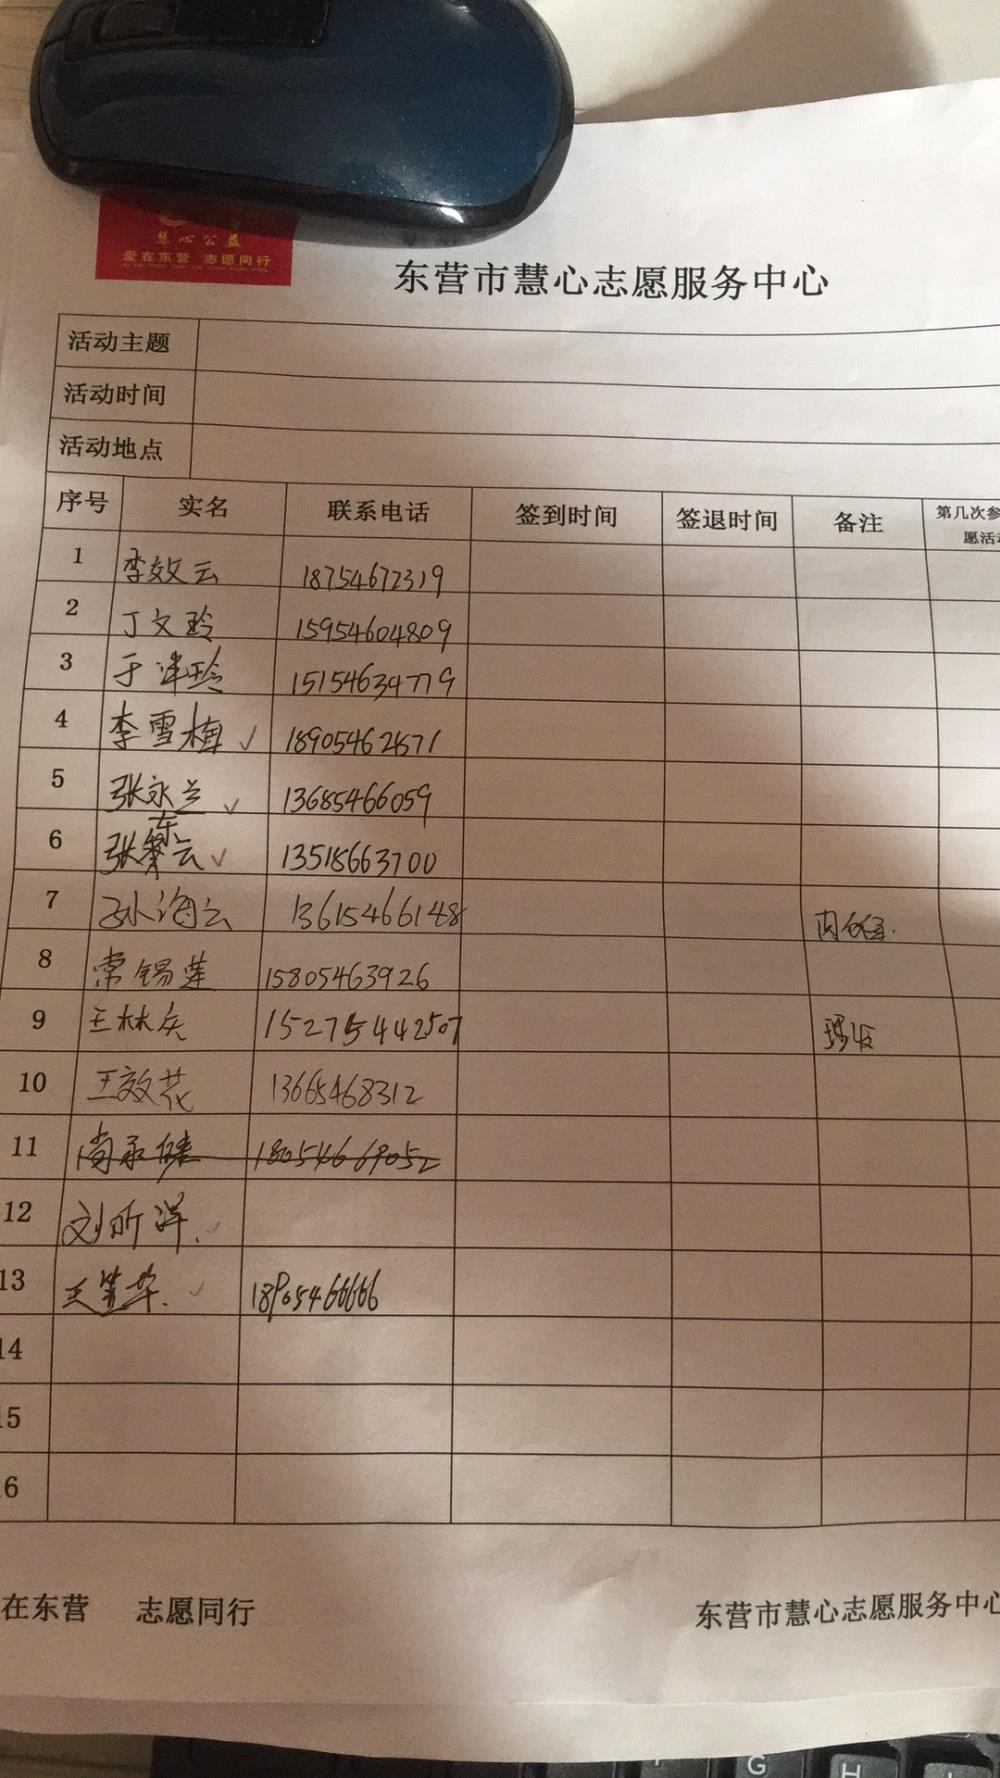 慧心公益
爱在东营 志愿同行
东营市慧心志愿服务中心
活动主题
活动时间
活动地点
序号 实名 联系电话 签到时间 签退时间 备注 第几次参
愿活动
1 李效云 18754672319
2 丁文玲 15954604809
3 于泽玲 15154634779
4 李雪梅 ✓ 18905462871
5 张永兰 ✓ 13685466059
6 张东云 ✓ 13518663700
7 孙海云 13615466148
8 常锡莲 15805463926
9 王林 15275442507
10 王效花 13665468312
11 尚永健 18054669052
12 刘昕洋. ✓
13 王 华. ✓ 18905466666
14
15
16
在东营 志愿同行
东营市慧心志愿服务中心
G
H